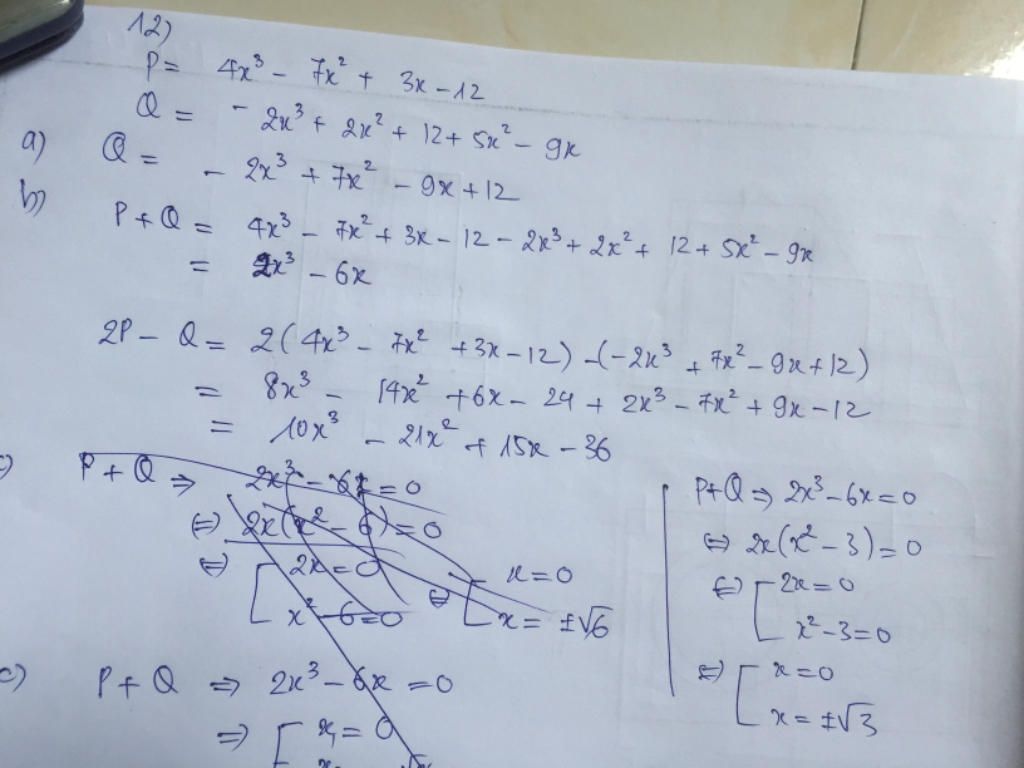 12)
P = 4x³ - 7x² + 3x - 12
Q = - 2x³ + 2x² + 12 + 5x² - 9x
a) Q = - 2x³ + 7x² - 9x + 12
b) P + Q = 4x³ - 7x² + 3x - 12 - 2x³ + 2x² + 12 + 5x² - 9x
= 2x³ - 6x
2P - Q = 2(4x³ - 7x² + 3x - 12) - (-2x³ + 7x² - 9x + 12)
= 8x³ - 14x² + 6x - 24 + 2x³ - 7x² + 9x - 12
= 10x³ - 21x² + 15x - 36
c) P + Q => 2x³ - 6x = 0
<=> 2x(x² - 6) = 0
<=> [ 2x = 0
x² - 6 = 0
<=> [ x = 0
x = ±√6
c) P + Q => 2x³ - 6x = 0
=> [ x = 0
P+Q => 2x³ - 6x = 0
<=> 2x(x² - 3) = 0
<=> [ 2x = 0
x² - 3 = 0
<=> [ x = 0
x = ±√3